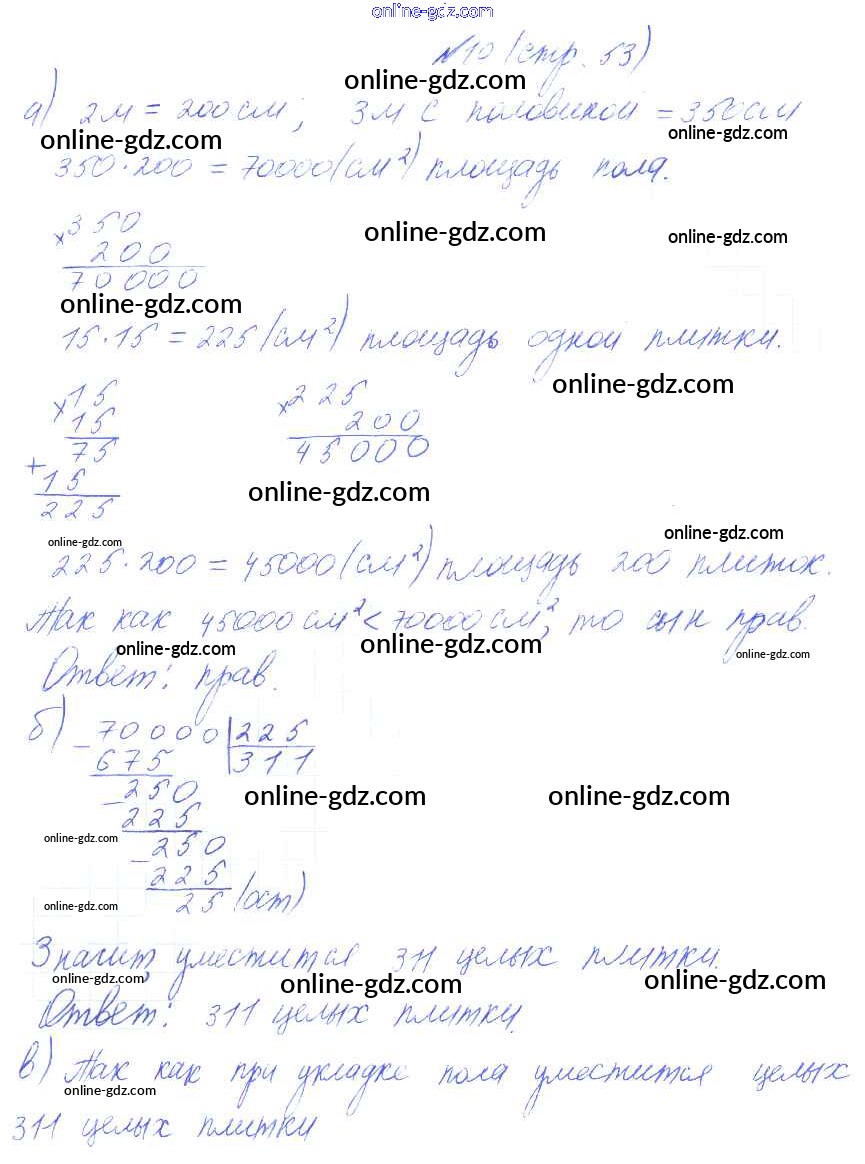 online-gdz.com
№10 (стр. 53)
online-gdz.com
а) 2м = 200см; 3м с половиной = 350см
online-gdz.com online-gdz.com
350·200 = 70000(см²) площадь пола.
×350 online-gdz.com online-gdz.com
200
70000
online-gdz.com
15·15 = 225(см²) площадь одной плитки.
online-gdz.com
×15 ×225
15 200
75 45000
+
15
225
online-gdz.com
online-gdz.com online-gdz.com
225·200 = 45000(см²) площадь 200 плиток.
Так как 45000см² < 70000см², то сын прав.
online-gdz.com online-gdz.com online-gdz.com
Ответ: прав.
б) - 70000 225
675 311
- 250
225
online-gdz.com online-gdz.com
online-gdz.com
- 250
225
25 (ост)
online-gdz.com
Значит, уместится 311 целых плитки.
online-gdz.com online-gdz.com online-gdz.com
Ответ: 311 целых плитки.
в) Так как при укладке пола уместится целых
online-gdz.com
311 целых плитки